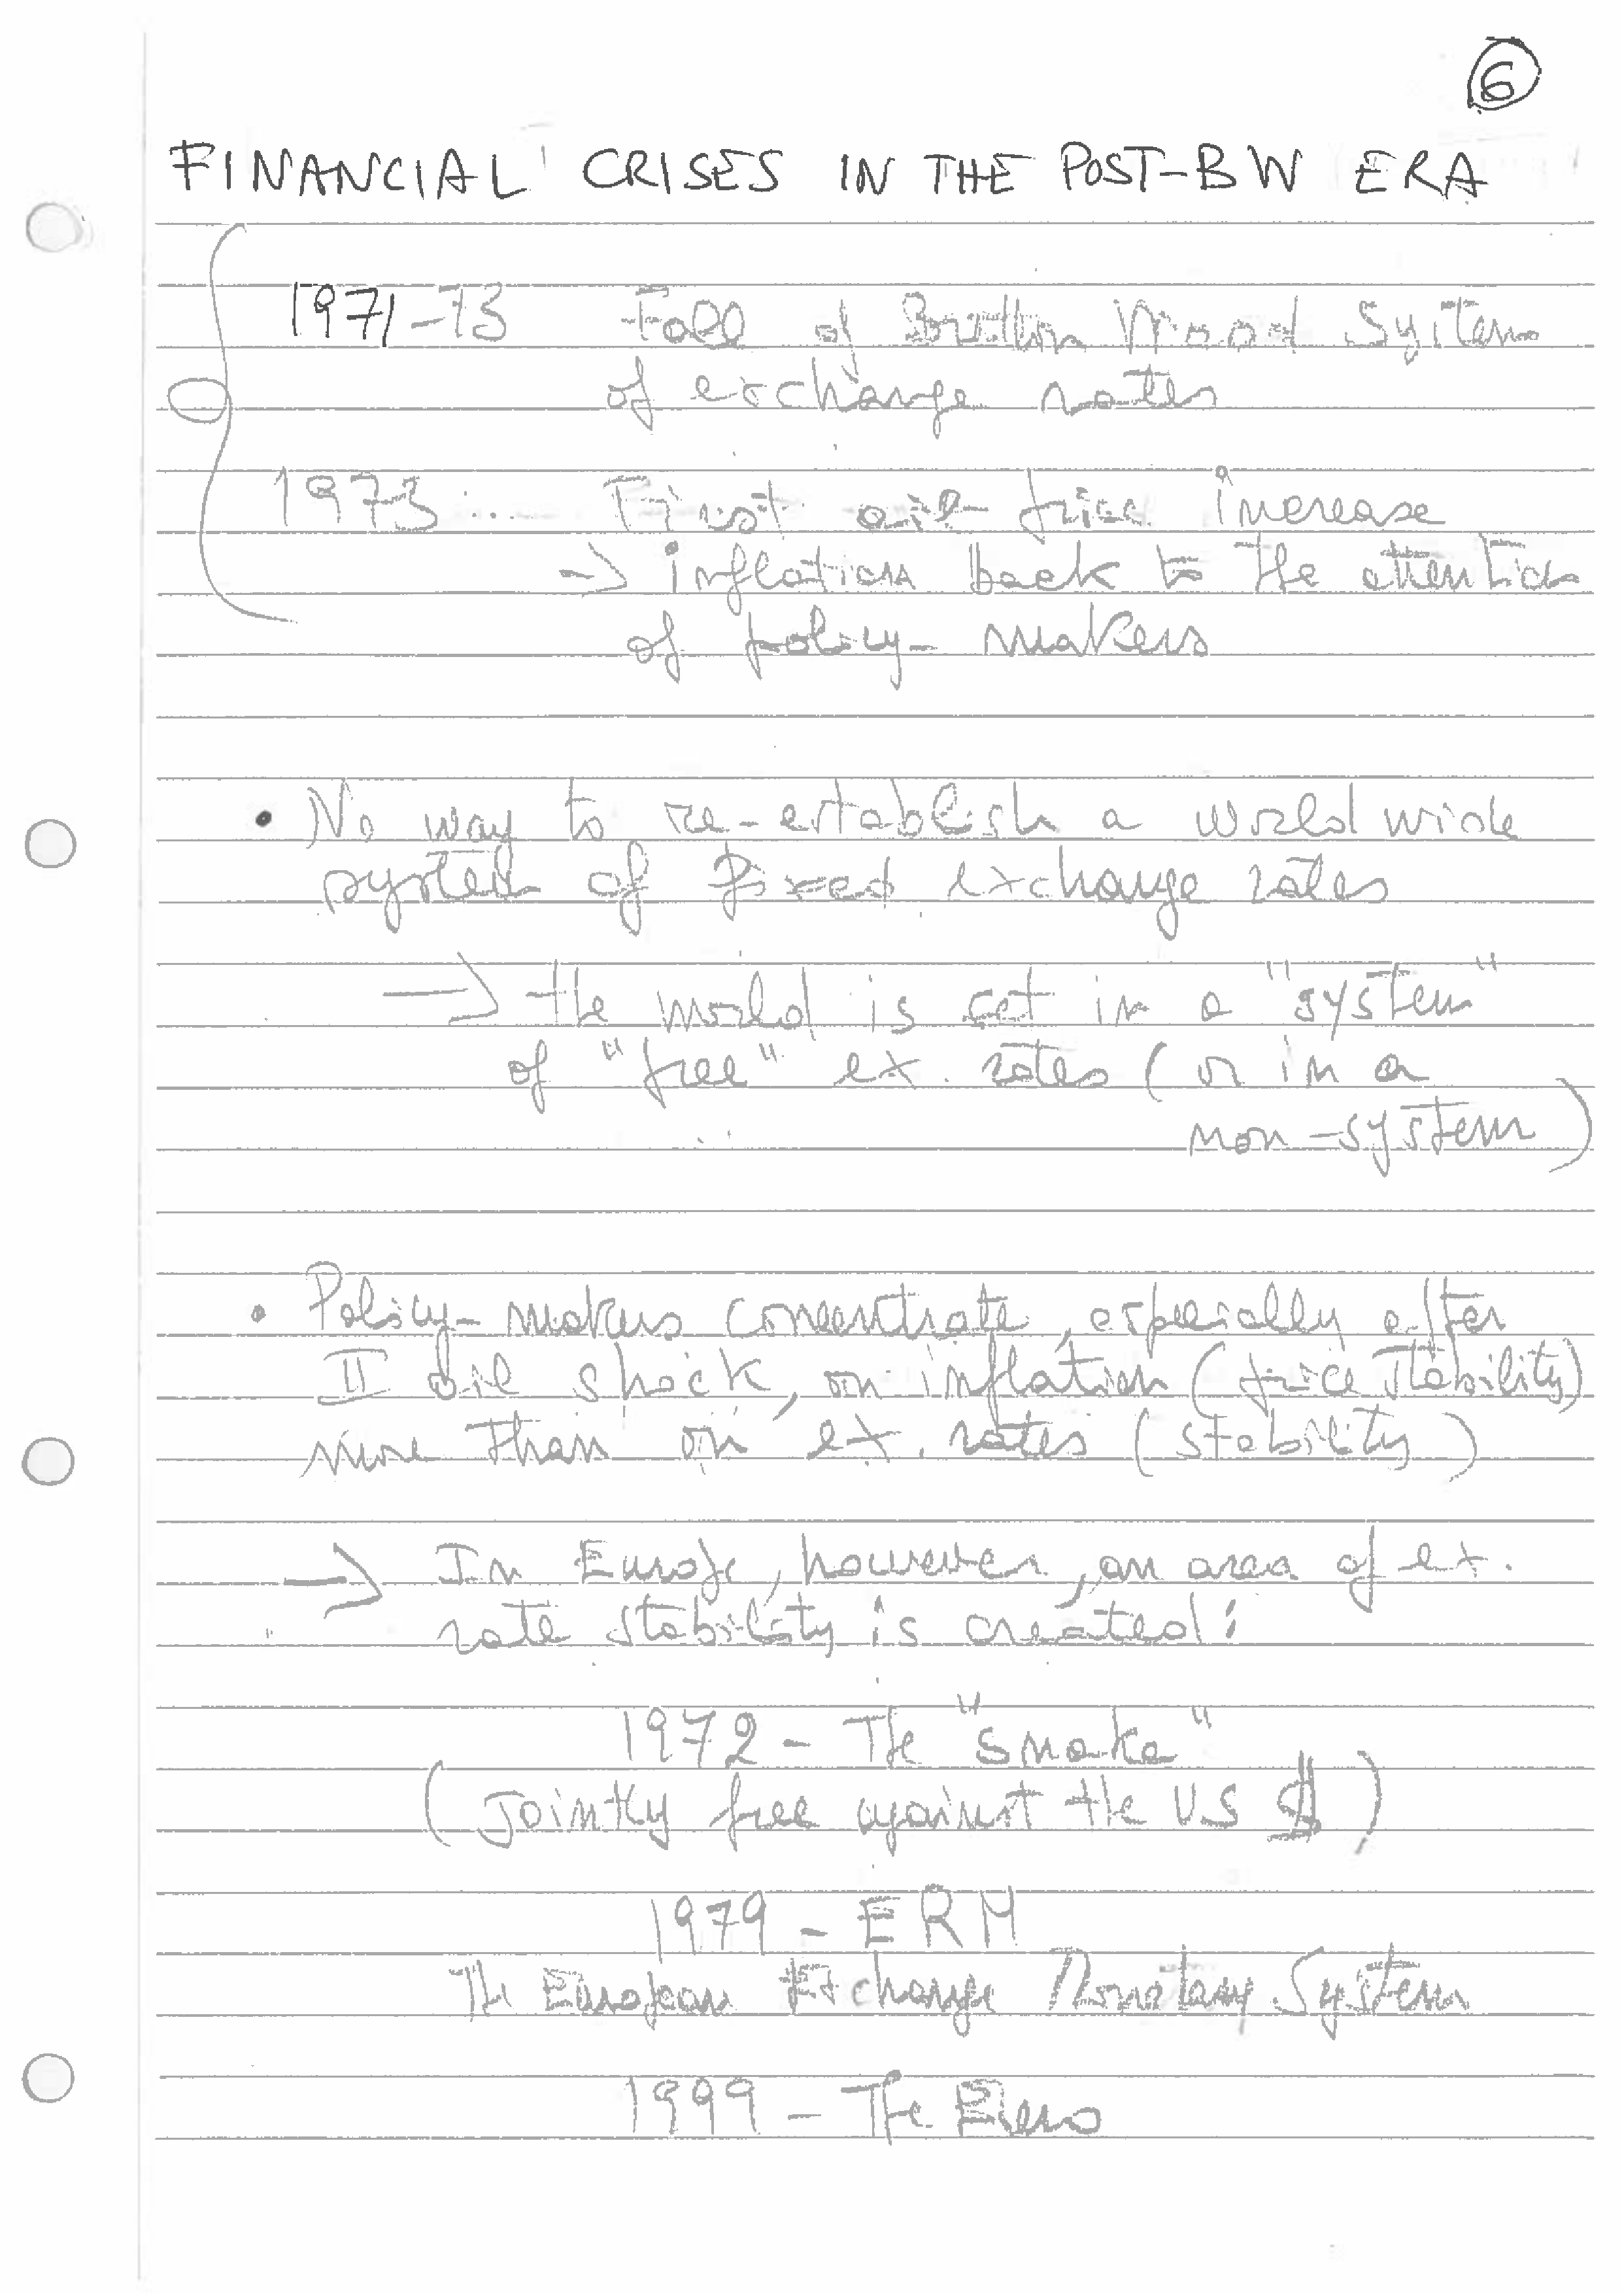 6
FINANCIAL CRISES IN THE POST-BW ERA
1971-73 Fall of Bretton Wood System
of exchange rates
1973 First oil price increase
-> inflation back to the attention
of policy-makers
• No way to re-establish a world wide
system of fixed exchange rates
-> the world is set in a "system"
of "free" ex. rates (or in a
non-system)
• Policy-makers concentrate, especially after
II oil shock, on inflation (price stability)
more than on ex. rates (stability)
-> In Europe, however, an area of ex.
rate stability is created:
1972 - The "Snake"
(Jointly free against the US $)
1979 - ERM
The European Exchange Monetary System
1999 - The Euro